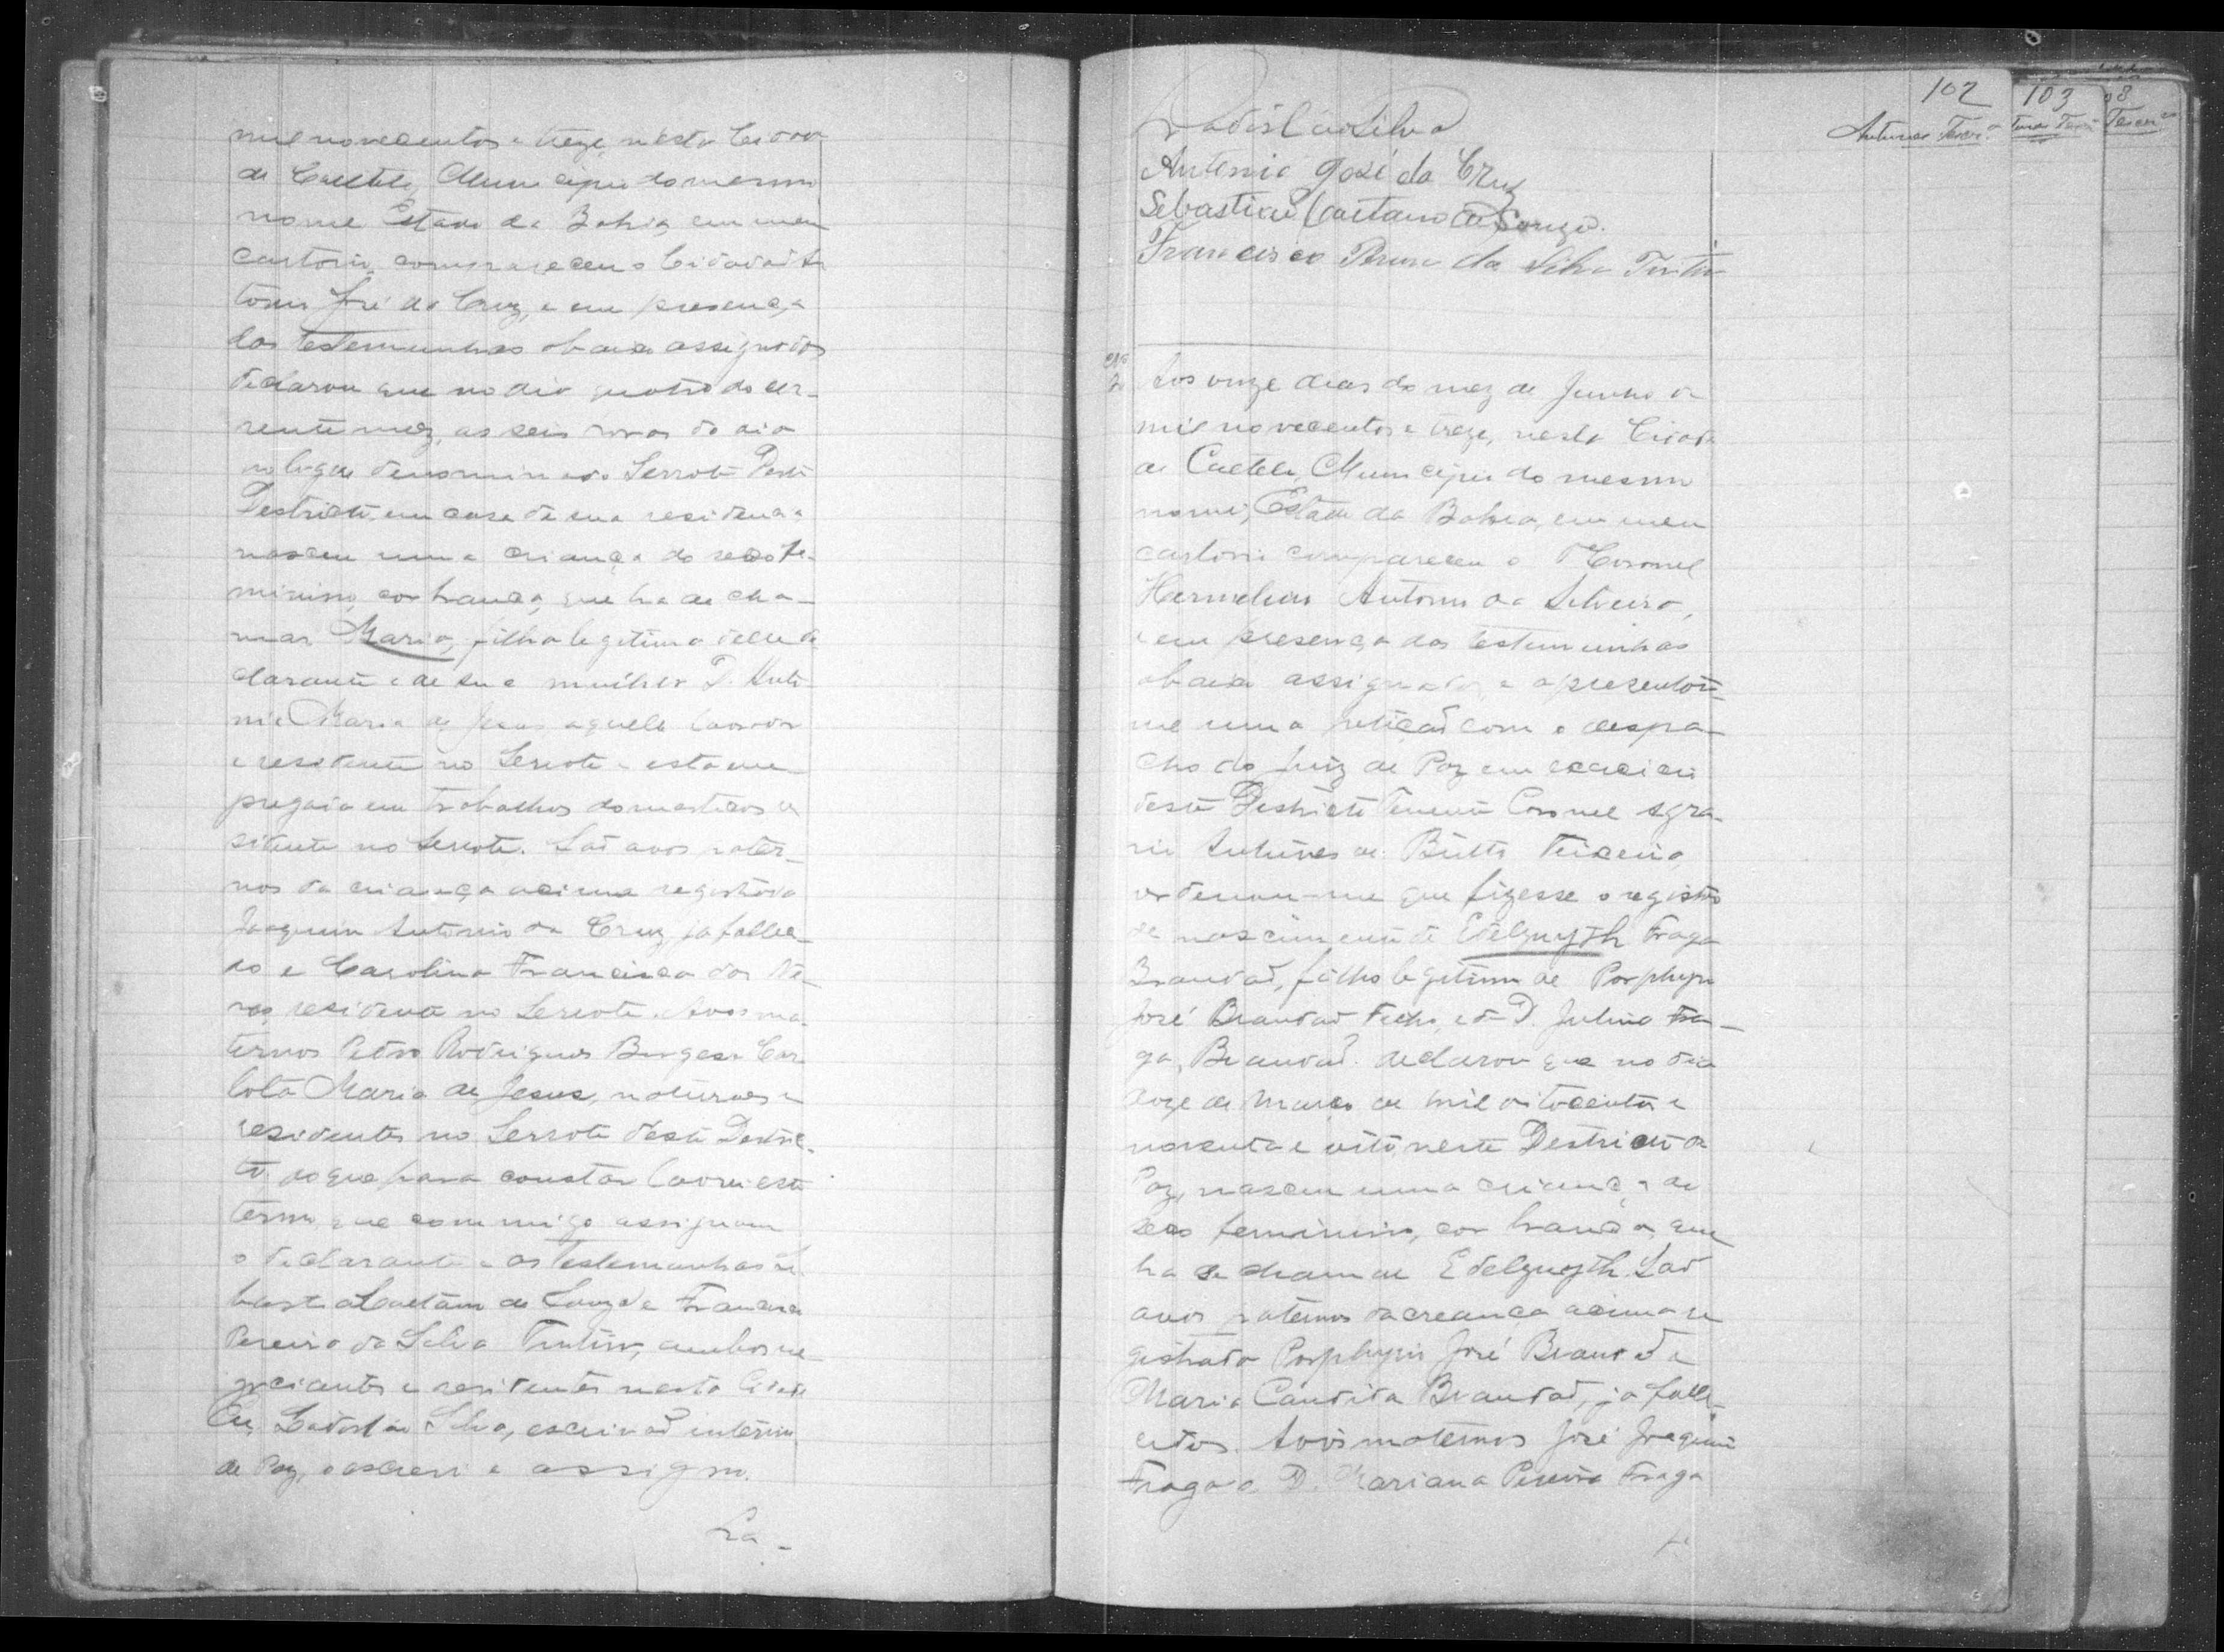 mil novecentos e treze, nesta Cidade
de Caetité, Municipio do mesmo
nome Estado da Bahia, em meu
cartorio, compareceu o Cidadão An
tonio José da Cruz, e em presença
das testemunhas abaixo assignados
declarou que no dia quatro do cor-
rente mez, as seis horas do dia
no lugar denominado Serrote deste
Destricto, em casa de sua residencia
nasceu uma criança do sexo fe-
minino, cor branca, que ha de cha-
mar Maria, filha legitima delle de
clarante e de sua mulher D. Anto
nia Maria de Jesus, aquelle lavrador
e residente no Serrote e esta em-
pregada em trabalhos domesticos re
sidente no Serrote. São avos pater-
nos da criança acima registrada
Joaquim Antonio da Cruz, ja falleci-
do e Carolina Francisca das Ne-
ves, residente no Serrote. Avos ma-
ternos Pedro Rodrigues Borges e Car
lota Maria de Jesus, naturaes e
residentes no Serrote deste Destric-
to, do que para constar lavrei este
termo, que commigo assignam
o declarante e as testemunhas Se
bastião Caetano de Souza e Francisco
Pereira da Silva Tintino, ambos ne
gociantes e residentes nesta Cidade
Eu, Ladislau Silva, escrivão interino
de Paz, o escrevi e assigno.
La-
102
103
Antunes Teixeira
Ladislau Silva
Antonio José da Cruz
Sebastião Caetano de Souza.
Francisco Pereira da Silva
Aos onze dias do mez de Junho de
mil novecentos e treze, nesta Cidade
de Caetité, Municipio do mesmo
nome, Estado da Bahia, em meu
cartorio compareceu o Coronel
Hermelino Antonio da Silveira,
e em presença das testemunhas
abaixo assignados, e apresentou-
me uma petição com o despa-
cho do Juiz de Paz em exercicio
deste Destricto Tenente Coronel
Antunes de Britto Teixeira,
ordenou-me que fizesse o registro
de nascimento de Edelzuyth Fraga
Brandão, filha legitima de Porphyrio
José Brandão Filho, e de D. Julina Fra-
ga, Brandão. declarou que no dia
doze de Março de mil oitocentos e
noventa e oito, neste Destricto de
Paz, nasceu uma criança de
sexo feminino, cor branca, que
ha de chamar Edelzuyth. São
avos paternos da creança acima re
gistrada Porphyrio José Brandão e
Maria Candida Brandão, ja falle-
cidos. Avós maternos José Joaquim
Fraga e D. Mariana Pereira Fraga